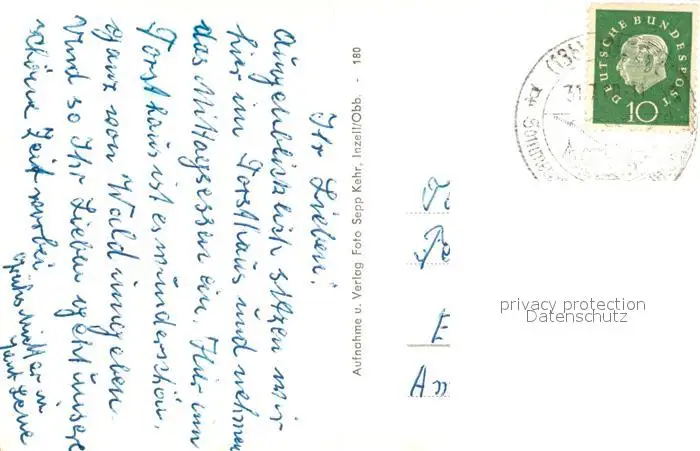 Ihr Lieben!
Augenblicklich sitzen wir
hier im Forsthaus und nehmen
das Mittagessen ein. Hier im
Forsthaus ist es wunderschön,
ganz von Wald umgeben.
Und so Ihr Lieben geht unsere
schöne Zeit vorbei
Aufnahme u. Verlag Foto Sepp Kehr, Inzell/Obb. - 180
DEUTSCHE BUNDESPOST
10
(13b)
31.
E
Am
privacy protection
Datenschutz